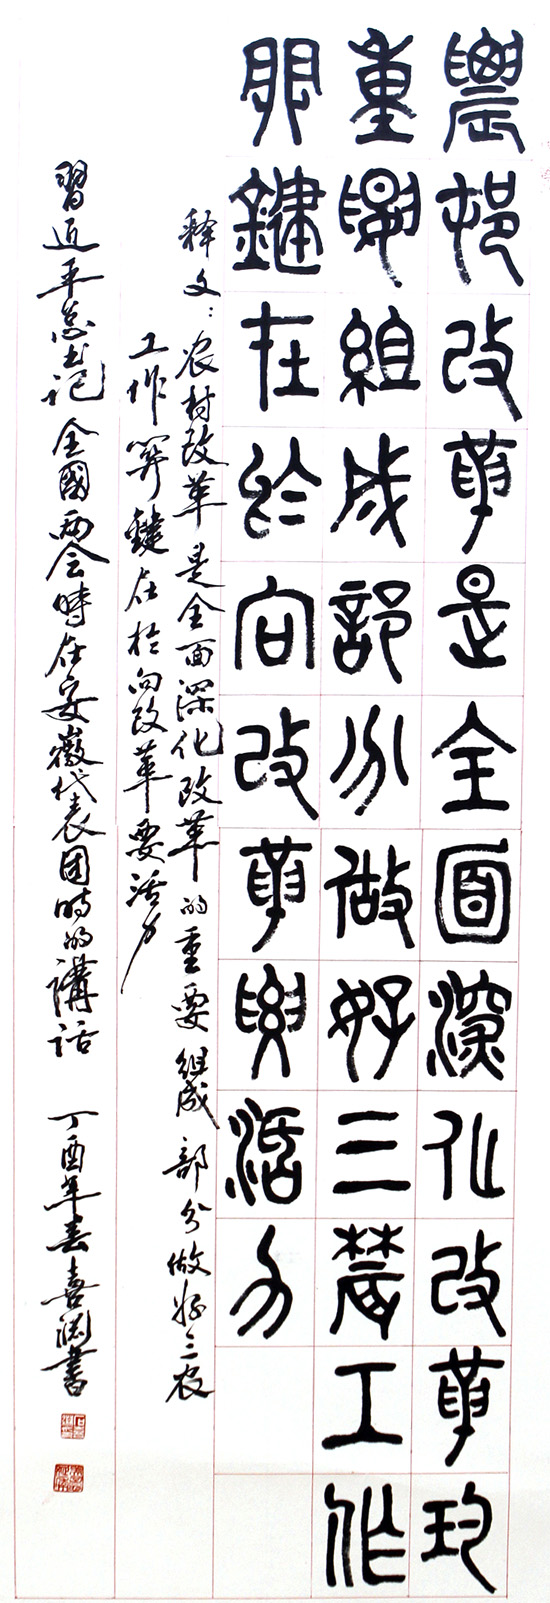 農邨改革是全面深化改革的
重要組成部分做好三農工作
關鍵在於向改革要活力
释文：农村改革是全面深化改革的重要组成部分做好三农
工作関鍵在於向改革要活力
習近平总书记全國两会時在安徽代表团时的講话 丁酉年春喜渊書